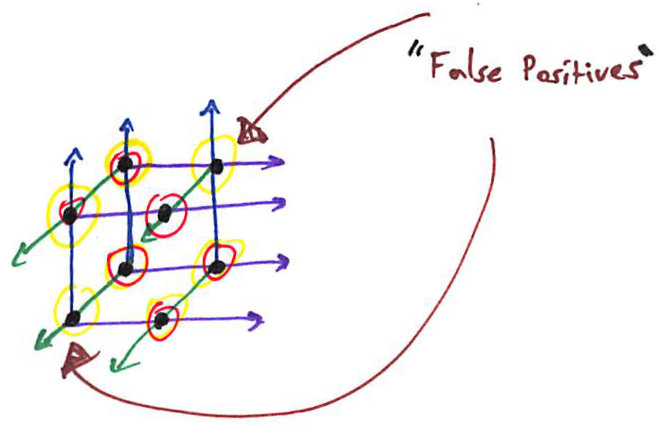 "False Positives"